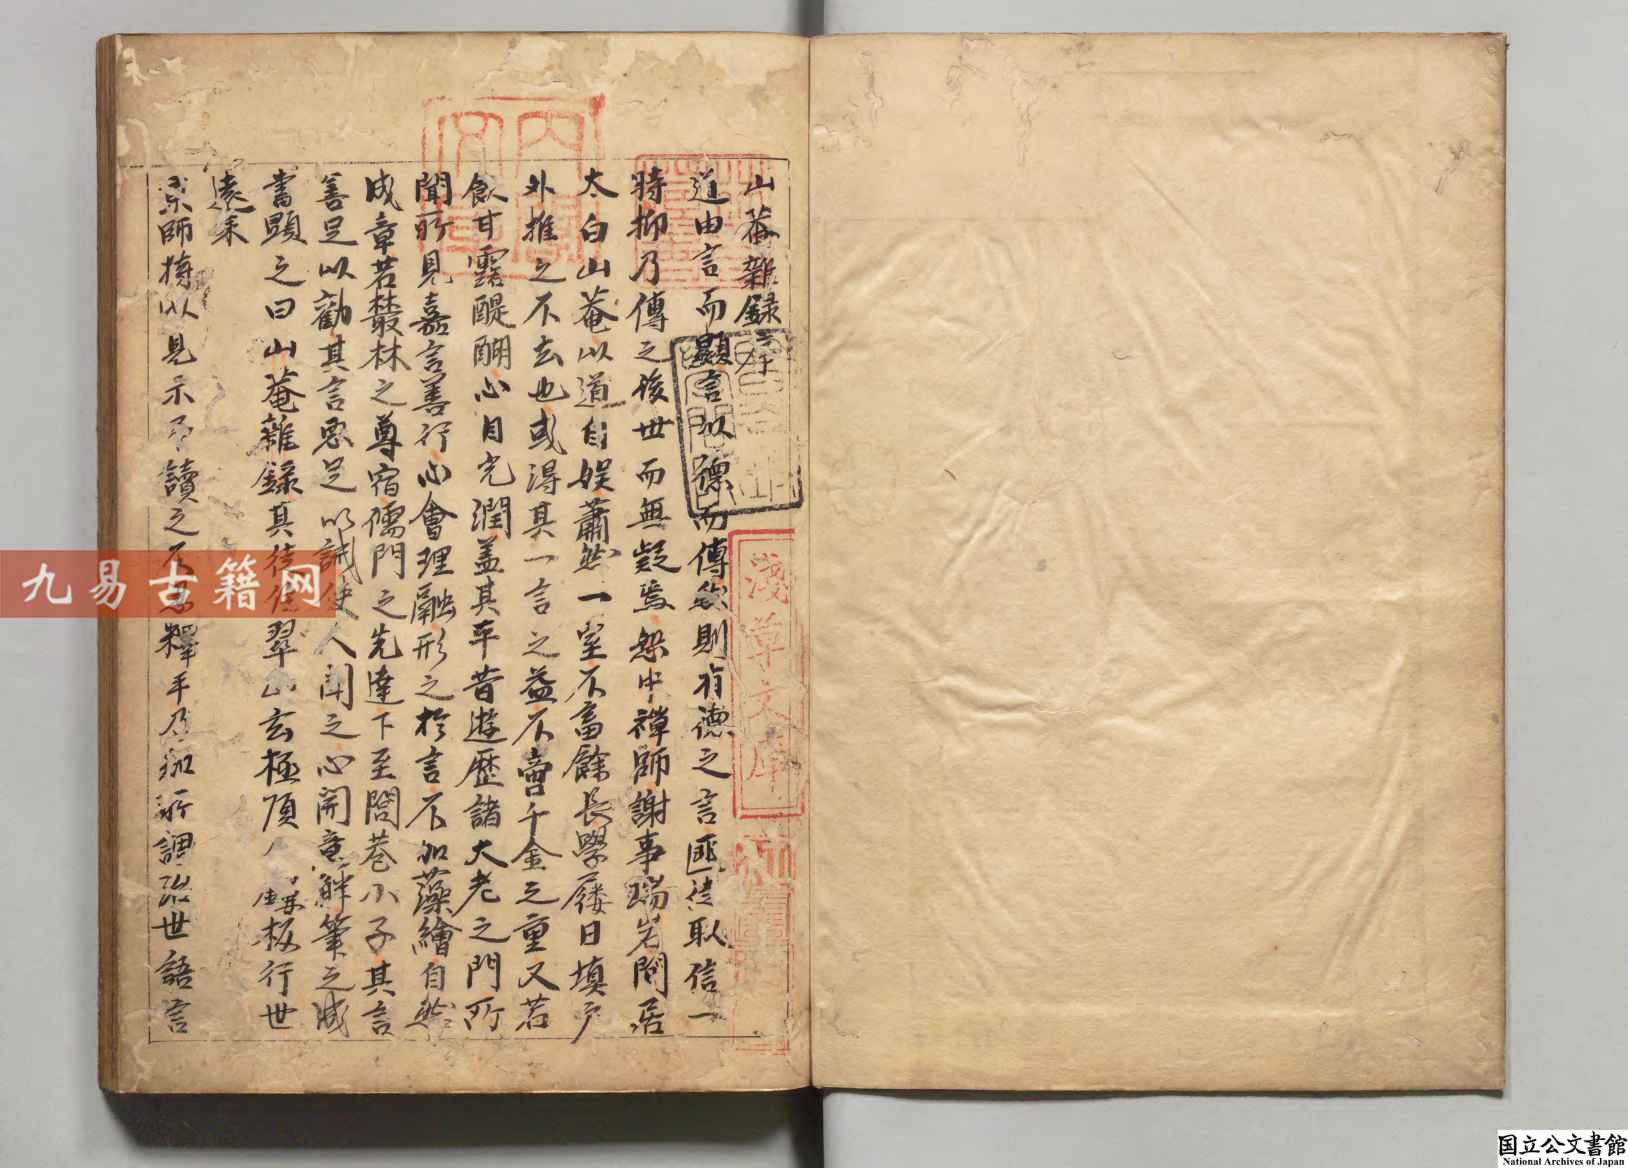 山菴雜録序
道由言而顯言以德而傳然則有德之言匪徒取信一
時抑乃傳之後世而無疑焉恕中禪師謝事瑞岩閒居
太白山菴以道自娱蕭然一室不畜餘長學屨日填戶
外推之不去也或得其一言之益不啻千金之重又若
飲甘露醍醐心目光潤盖其平昔遊歷諸大老之門所
聞所見嘉言善行心會理融形之於言不加藻繪自然
成章若叢林之尊宿儒門之先達下至閭巷小子其言
善足以勸其言惡足以誡使人聞之心開意解筆之成
書顯之曰山菴雜録其徒翠山玄極頂板行世
遠來
京師持以見示予讀之不釋手乃知所謂治世語言
淺草文庫
九易古籍网
国立公文書館
National Archives of Japan